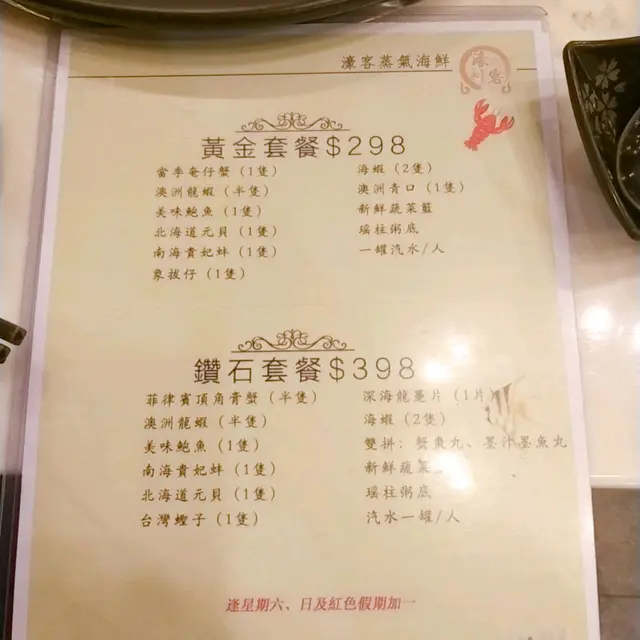 濠客蒸氣海鮮
黃金套餐$298
當季奄仔蟹(1隻)
澳洲龍蝦(半隻)
美味鮑魚(1隻)
北海道元貝(1隻)
南海貴妃蚌(1隻)
象拔仔(1隻)
海蝦(2隻)
澳洲青口(1隻)
新鮮蔬菜籃
瑤柱粥底
一罐汽水/人
鑽石套餐$398
菲律賓頂角膏蟹(半隻)
澳洲龍蝦(半隻)
美味鮑魚(1隻)
南海貴妃蚌(1隻)
北海道元貝(1隻)
台灣蟶子(1隻)
深海龍躉片(1片)
海蝦(2隻)
雙拼:蟹棗丸、墨汁墨魚丸
新鮮蔬菜
瑤柱粥底
汽水一罐/人
逢星期六、日及紅色假期加一